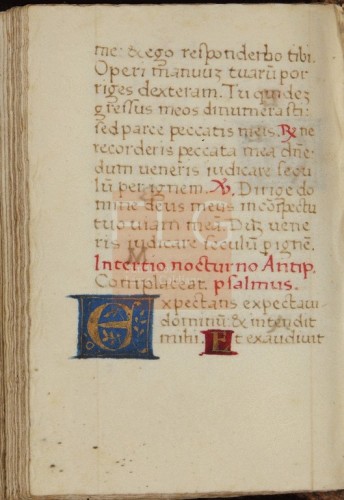 me: & ego respondebo tibi.
Operi manuuz tuarū por
riges dexteram. Tu quidez
gressus meos dinumerasti:
sed parce peccatis meis. ℟ Ne
recorderis peccata mea dñe.
dum veneris iudicare secu
lū per ignem. ℣. Dirige do
mine deus meus in cōspectu
tuo viam meā. Duz vene
ris iudicare seculū p ignē.
In tertio nocturno Antip.
Complaceat. psalmus.
Expectans expectaui
dominū: & intendit
mihi. Et exaudiuit